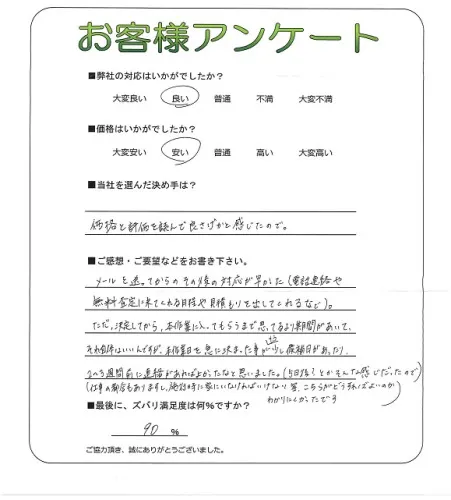 お客様アンケート
■弊社の対応はいかがでしたか？
大変良い 良い 普通 不満 大変不満
■価格はいかがでしたか？
大変安い 安い 普通 高い 大変高い
■当社を選んだ決め手は？
価格と評価を読んで良さげかと感じたので。
■ご感想・ご要望などをお書き下さい。
メールを送ってからのその後の対応が早かった(電話連絡や
無料査定に来てくれる日程や見積もりを出してくれるなど)。
ただ、決定してから、本作業に入ってもらうまで思ってるより期間があいて、
それ自体はいいんですが、本作業日を急に決まった事が少し候補日があったり、
2〜3週間前に連絡があればよかったなと思いました。(5日後!とかそんな感じだったので)
(仕事の都合もありますし、施設時に家にいなければいけない等、こちらがどうすればよいのか
わかりにくかったです
■最後に、ズバリ満足度は何％ですか？
90 ％
ご協力頂き、誠にありがとうございました。